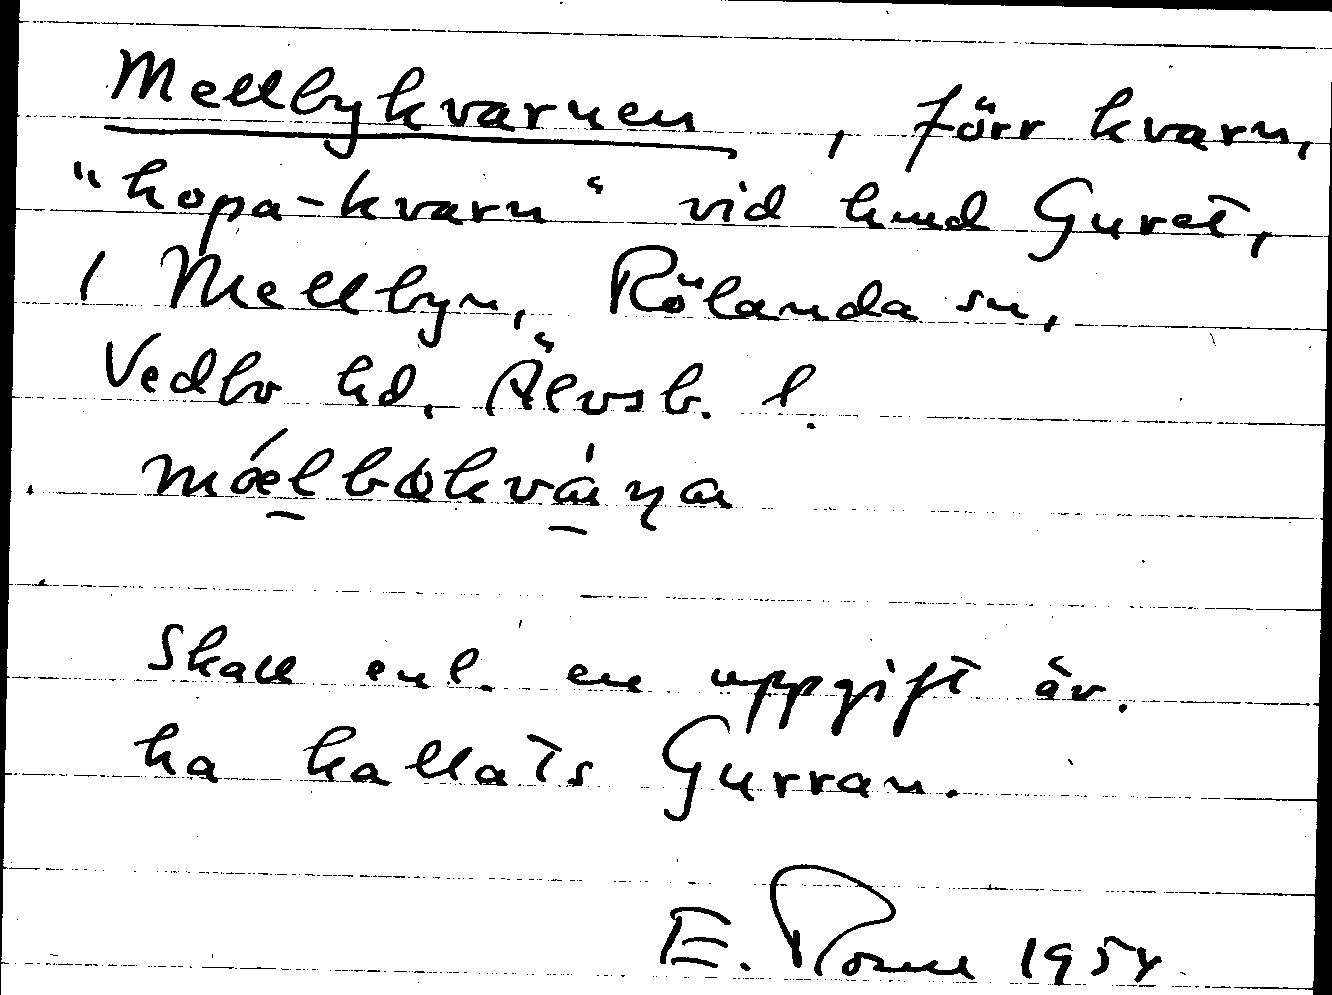 Mellbykvarnen, förr kvarn,
"hopa-kvarn" vid hmd Guret,
i Mellbyn, Rölanda sn,
Vedbo hd, Älvsb. l.
Skall enl. en uppgift äv.
ha kallats Gurran.
E. 1954